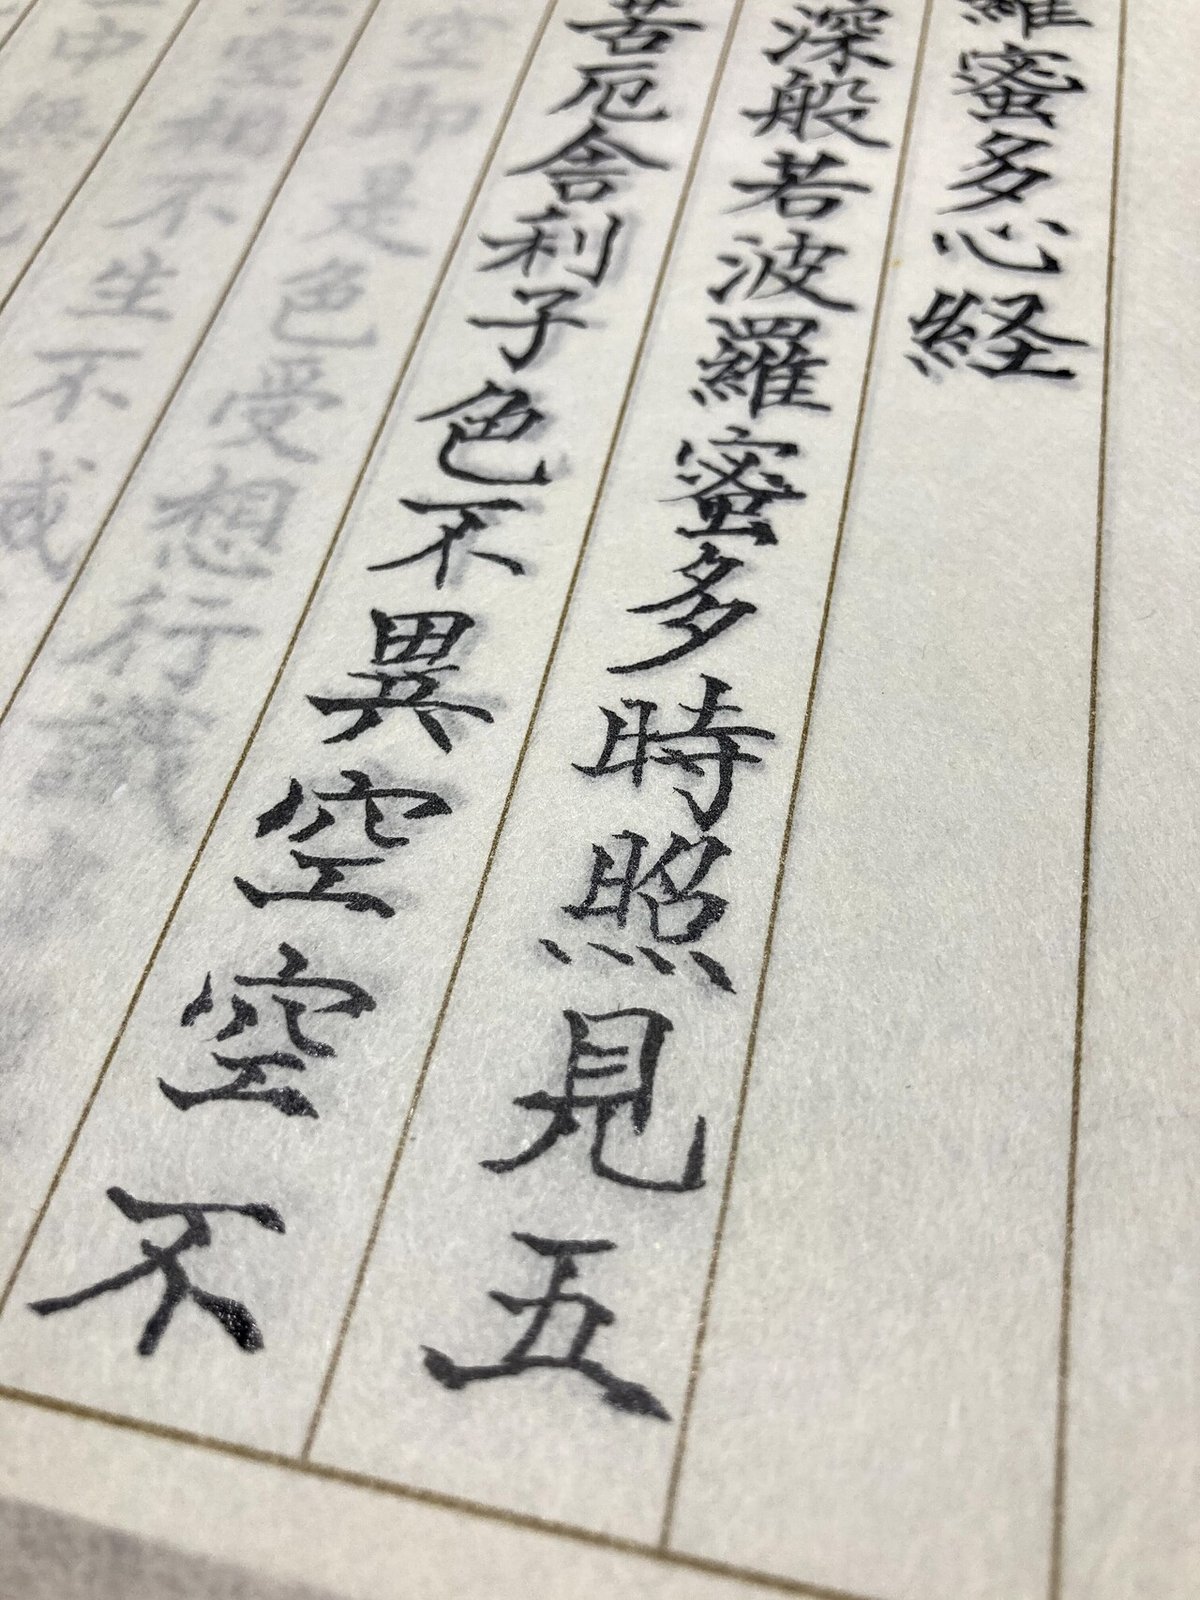 羅蜜多心経
深般若波羅蜜多時照見五
苦厄舎利子色不異空空不
空即是色受想行識
空相不生不滅
中